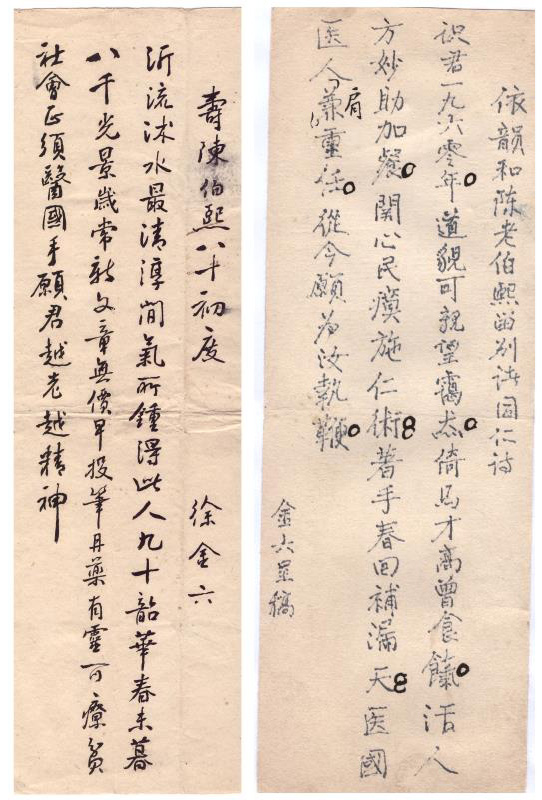 依韻和陈老伯熙留别诸同仁诗
识君一九六零年。道貌可親望靄然。倚馬才高曾食餼。活人
方妙助加餐。関心民瘼施仁術。著手春回補漏天。医國
医人兼肩重任。從今願为汝執鞭。
金六呈稿
壽陳伯熙八十初度 徐金六
沂流沭水最清淳間氣所鍾得此人九十韶華春未暮
八千光景歲常新文章無價早投筆丹藥有靈可療貧
社會正須醫國手願君越老越精神